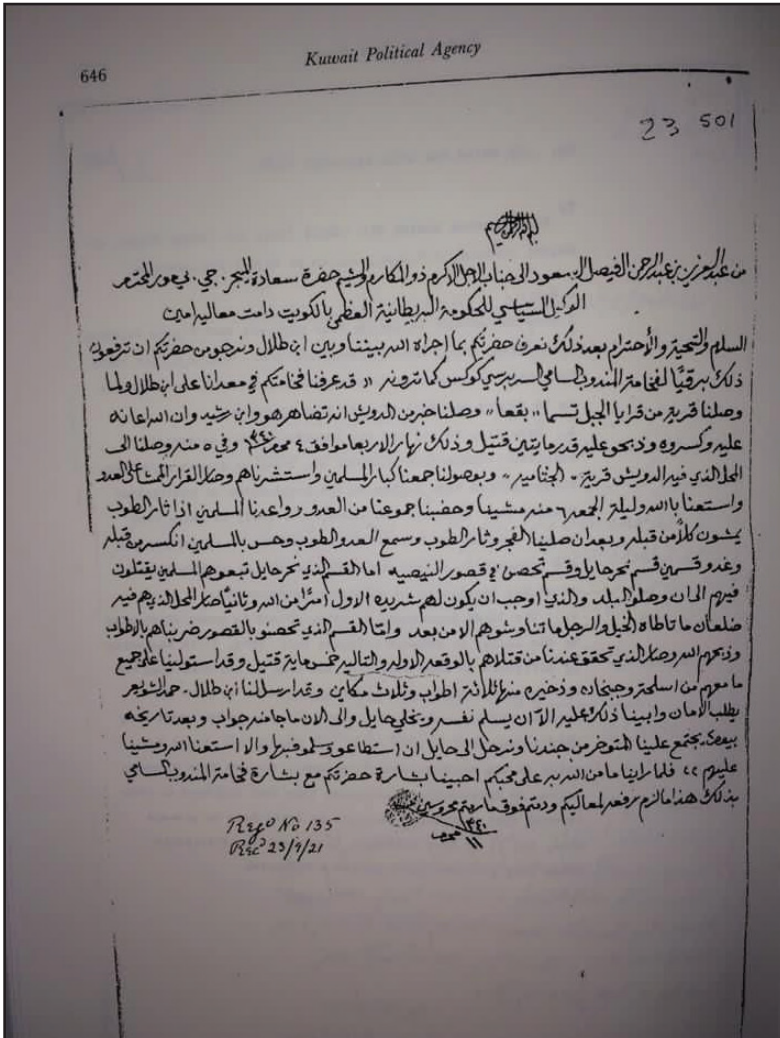 646
Kuwait Political Agency
23 501
بسم الله الرحمن الرحيم
من عبدالعزيز بن عبدالرحمن الفيصل السعود الى جناب الاجل الاكرم ذو المكارم والشيم حضرة سعادة الميجر. جي. سي مور المحترم
الوكيل السياسي للحكومة البريطانية العظمى بالكويت دامت معاليه امين
السلام والتحية والأحترام بعد ذلك نعرف حضرتكم بما اجراه الله بيننا وبين ابن طلال ونرجو من حضرتكم ان ترفعون
ذلك برقيًا لفخامة المندوب السامي السر برسي كوكس كما ترونه « قد عرفنا فخامتكم في معدانا على ابن طلال ولما
وصلنا قرية من قرايا الجبل تسما « بقعا » وصلنا خبر من الدويش انه تضاهر هو وابن رشيد وان الله اعانه
عليه وكسروه وذبحو عليه قدر مايتين قتيل وذلك نهار الاربعا موافق ٤ محرم ١٣٤٠ وفي ٥ منه وصلنا الى
المحل الذي فيه الدويش قرية « الجثاميه » وبوصولنا جمعنا كبار المسلمين واستشرناهم وصار القرار الممشا على العدو
واستعنا باالله وليلة الجمعه ٦ منه مشينا وحضبنا جموعنا من العدو وواعدنا المسلمين اذا ثار الطوب
يمشون كلاً من قبله وبعد ان صلينا الفجر وثار الطوب وسمع العدو الطوب وحس بالمسلمين انكسر من قبله
وغدو قسمين قسم نحر حايل وقسم تحصن في قصور النيصيه اما القسم الذي نحر حايل تبعوهم المسلمين يقتلون
فيهم الى ان وصلو البلد والذي اوجب ان يكون لهم شريده الاول امرًا من الله وثانيًا صار المحل الذي هم فيه
ضلعان ما تاطاه الخيل والرجل ما تناوشوهم الا من بعد وامّا القسم الذي تحصنو بالقصور ضربناهم بالاطواب
وذبحهم الله وصار الذي تحقق عندنا من قتلاهم بالوقعه الاوله والتاليه خمس ماية قتيل وقد استولينا على جميع
ما معهم من اسلحة وجبخانه وذخيره منها ثلاثة اطواب وثلاث مكاين وقد ارسل لنا ابن طلال. حمد الشويعر
يطلب الامان وابينا ذلك عليه الا ان يسلم نفسه ويخلي حايل والى الان ما جا منه جواب وبعد تاريخه
يجتمع علينا المتوخر من جندنا ونرحل الى حايل ان استطاعو وسلمو فبها والا استعنا الله ومشينا
عليهم » فلما راينا ما من الله به على محبكم احبينا بشارة حضرتكم مع بشارة فخامة المندوب السامي
بذلك هذا ما لزم رفعه لمعاليكم ودمتم فوق ما رمتم محروسين
١٣٤٠
محرم
١١
Regd No 135
Recd 23/9/21